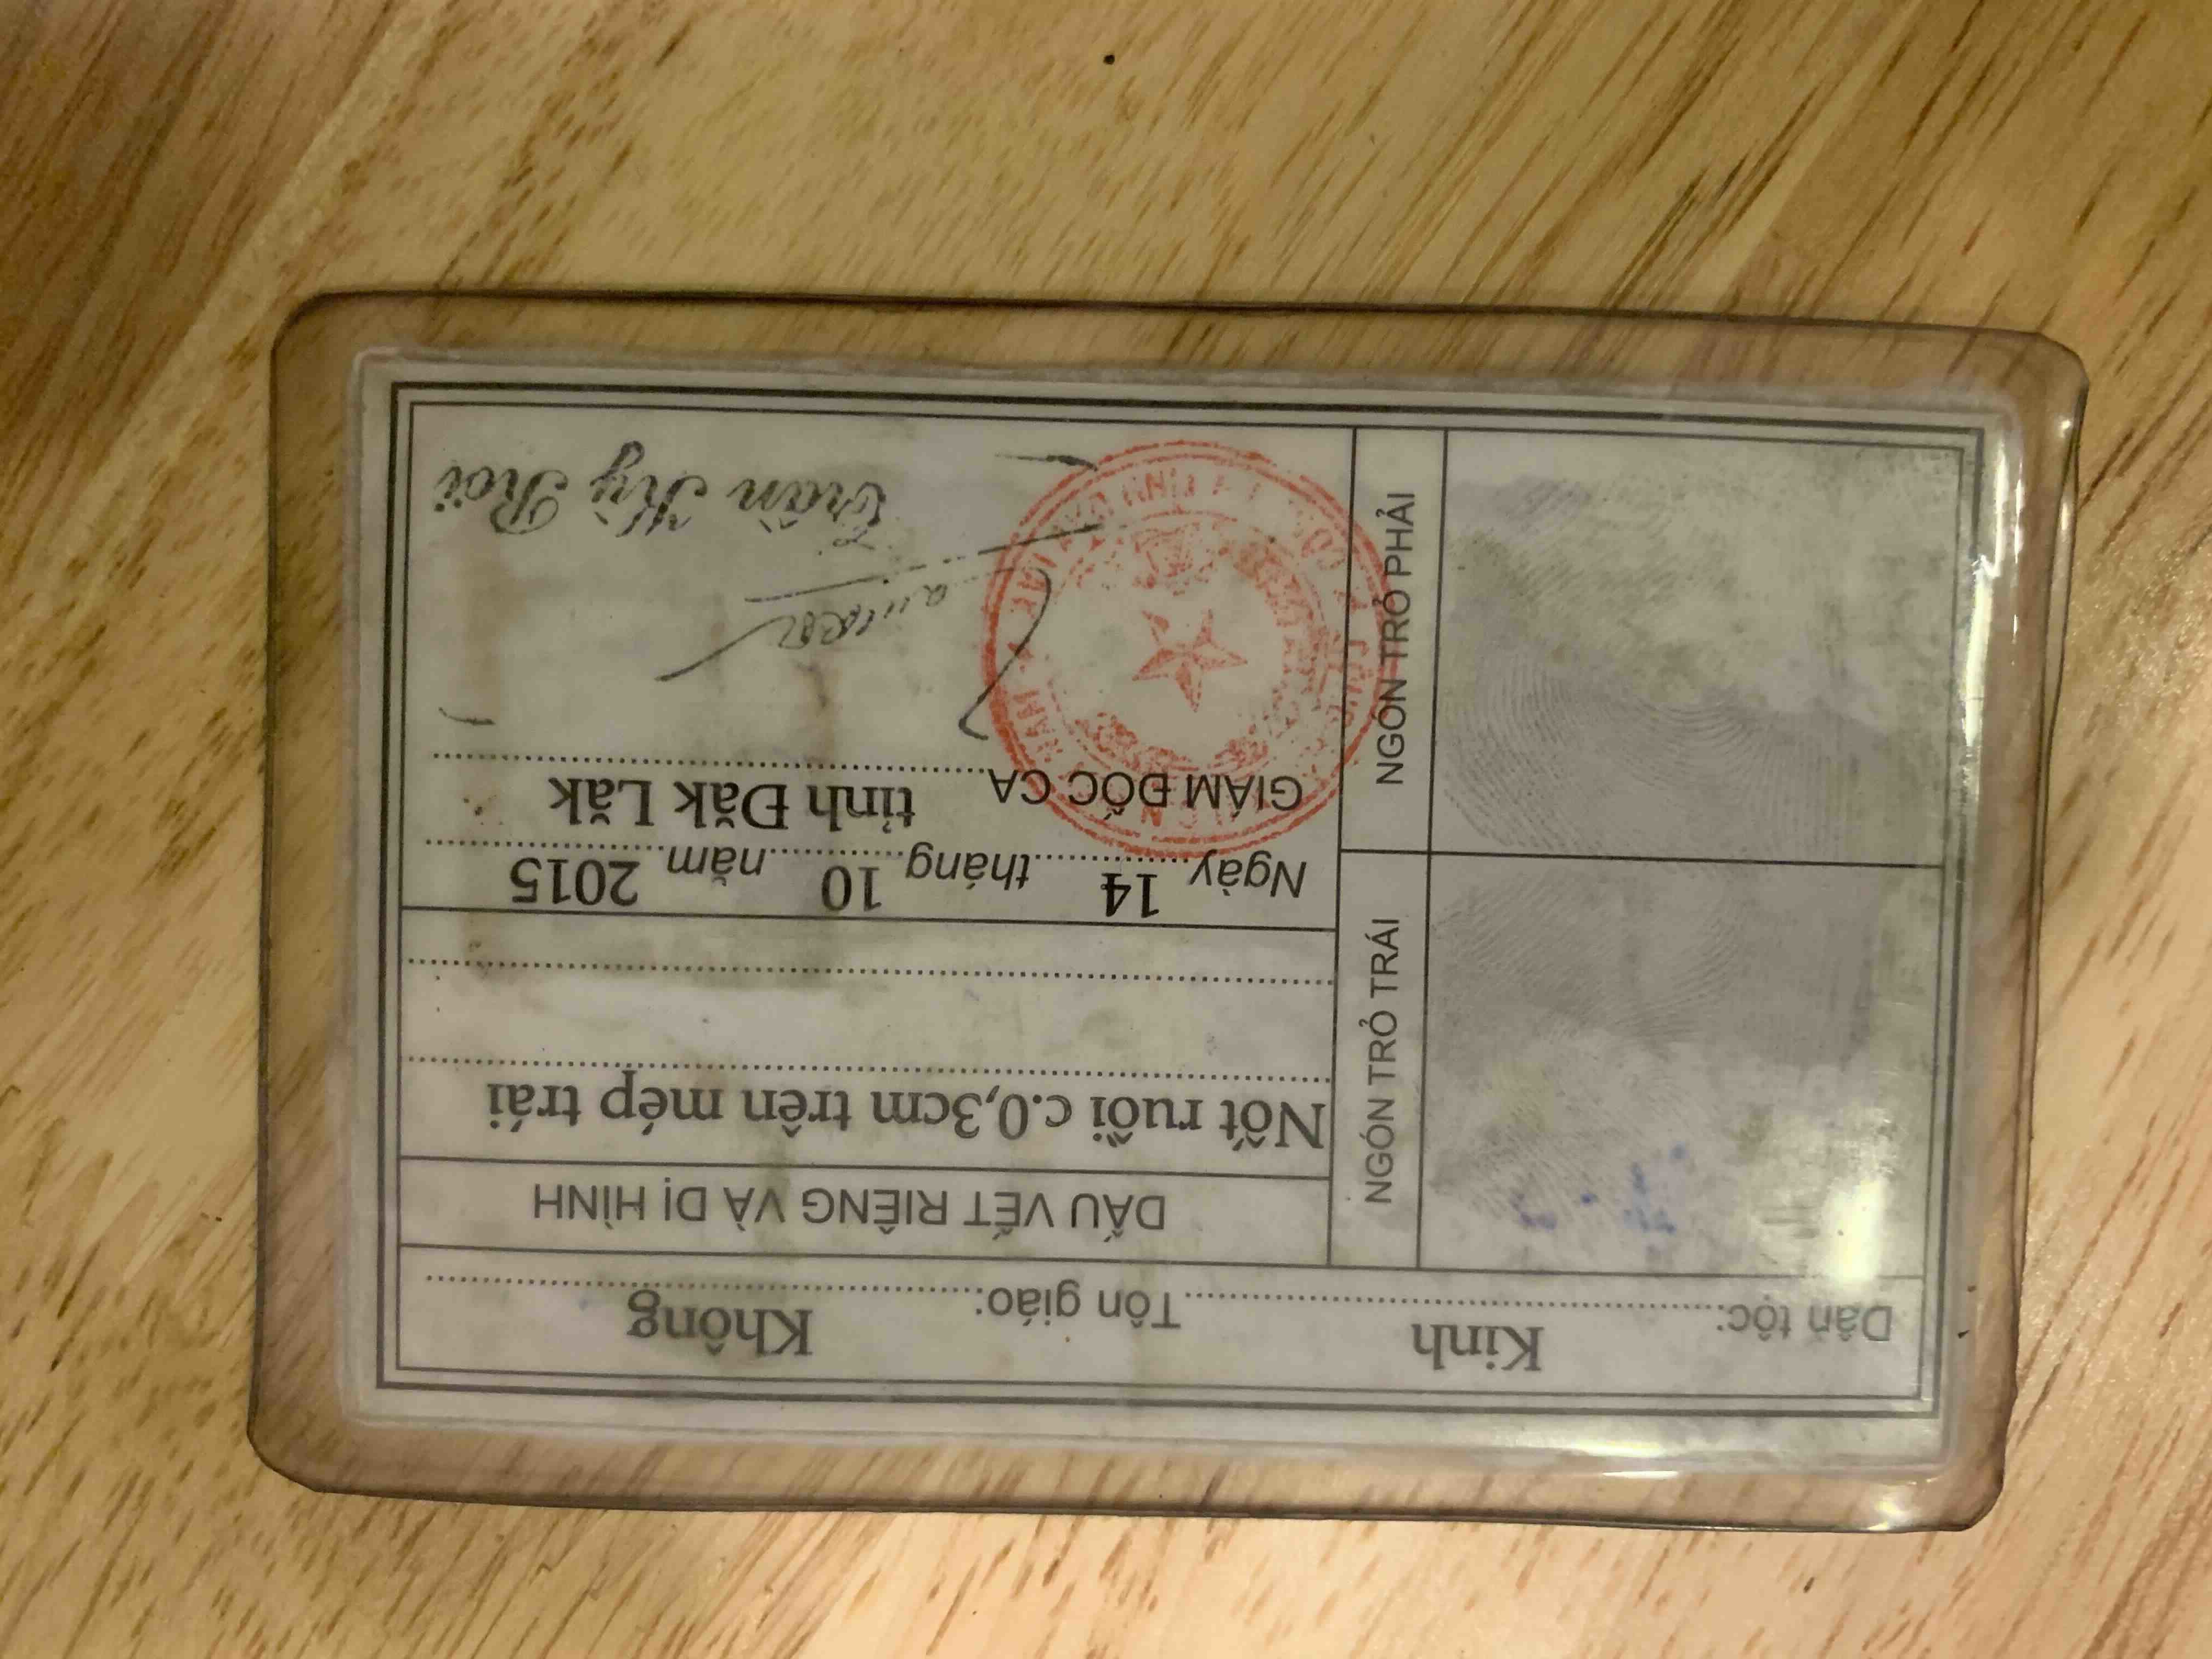 Dân tộc: Kinh Tôn giáo: Không
NGÓN TRỎ TRÁI
NGÓN TRỎ PHẢI
DẤU VẾT RIÊNG VÀ DỊ HÌNH
Nốt ruồi c.0,3cm trên mép trái
Ngày 14 tháng 10 năm 2015
GIÁM ĐỐC CA tỉnh Đăk Lăk
Trần Kỳ Rơi